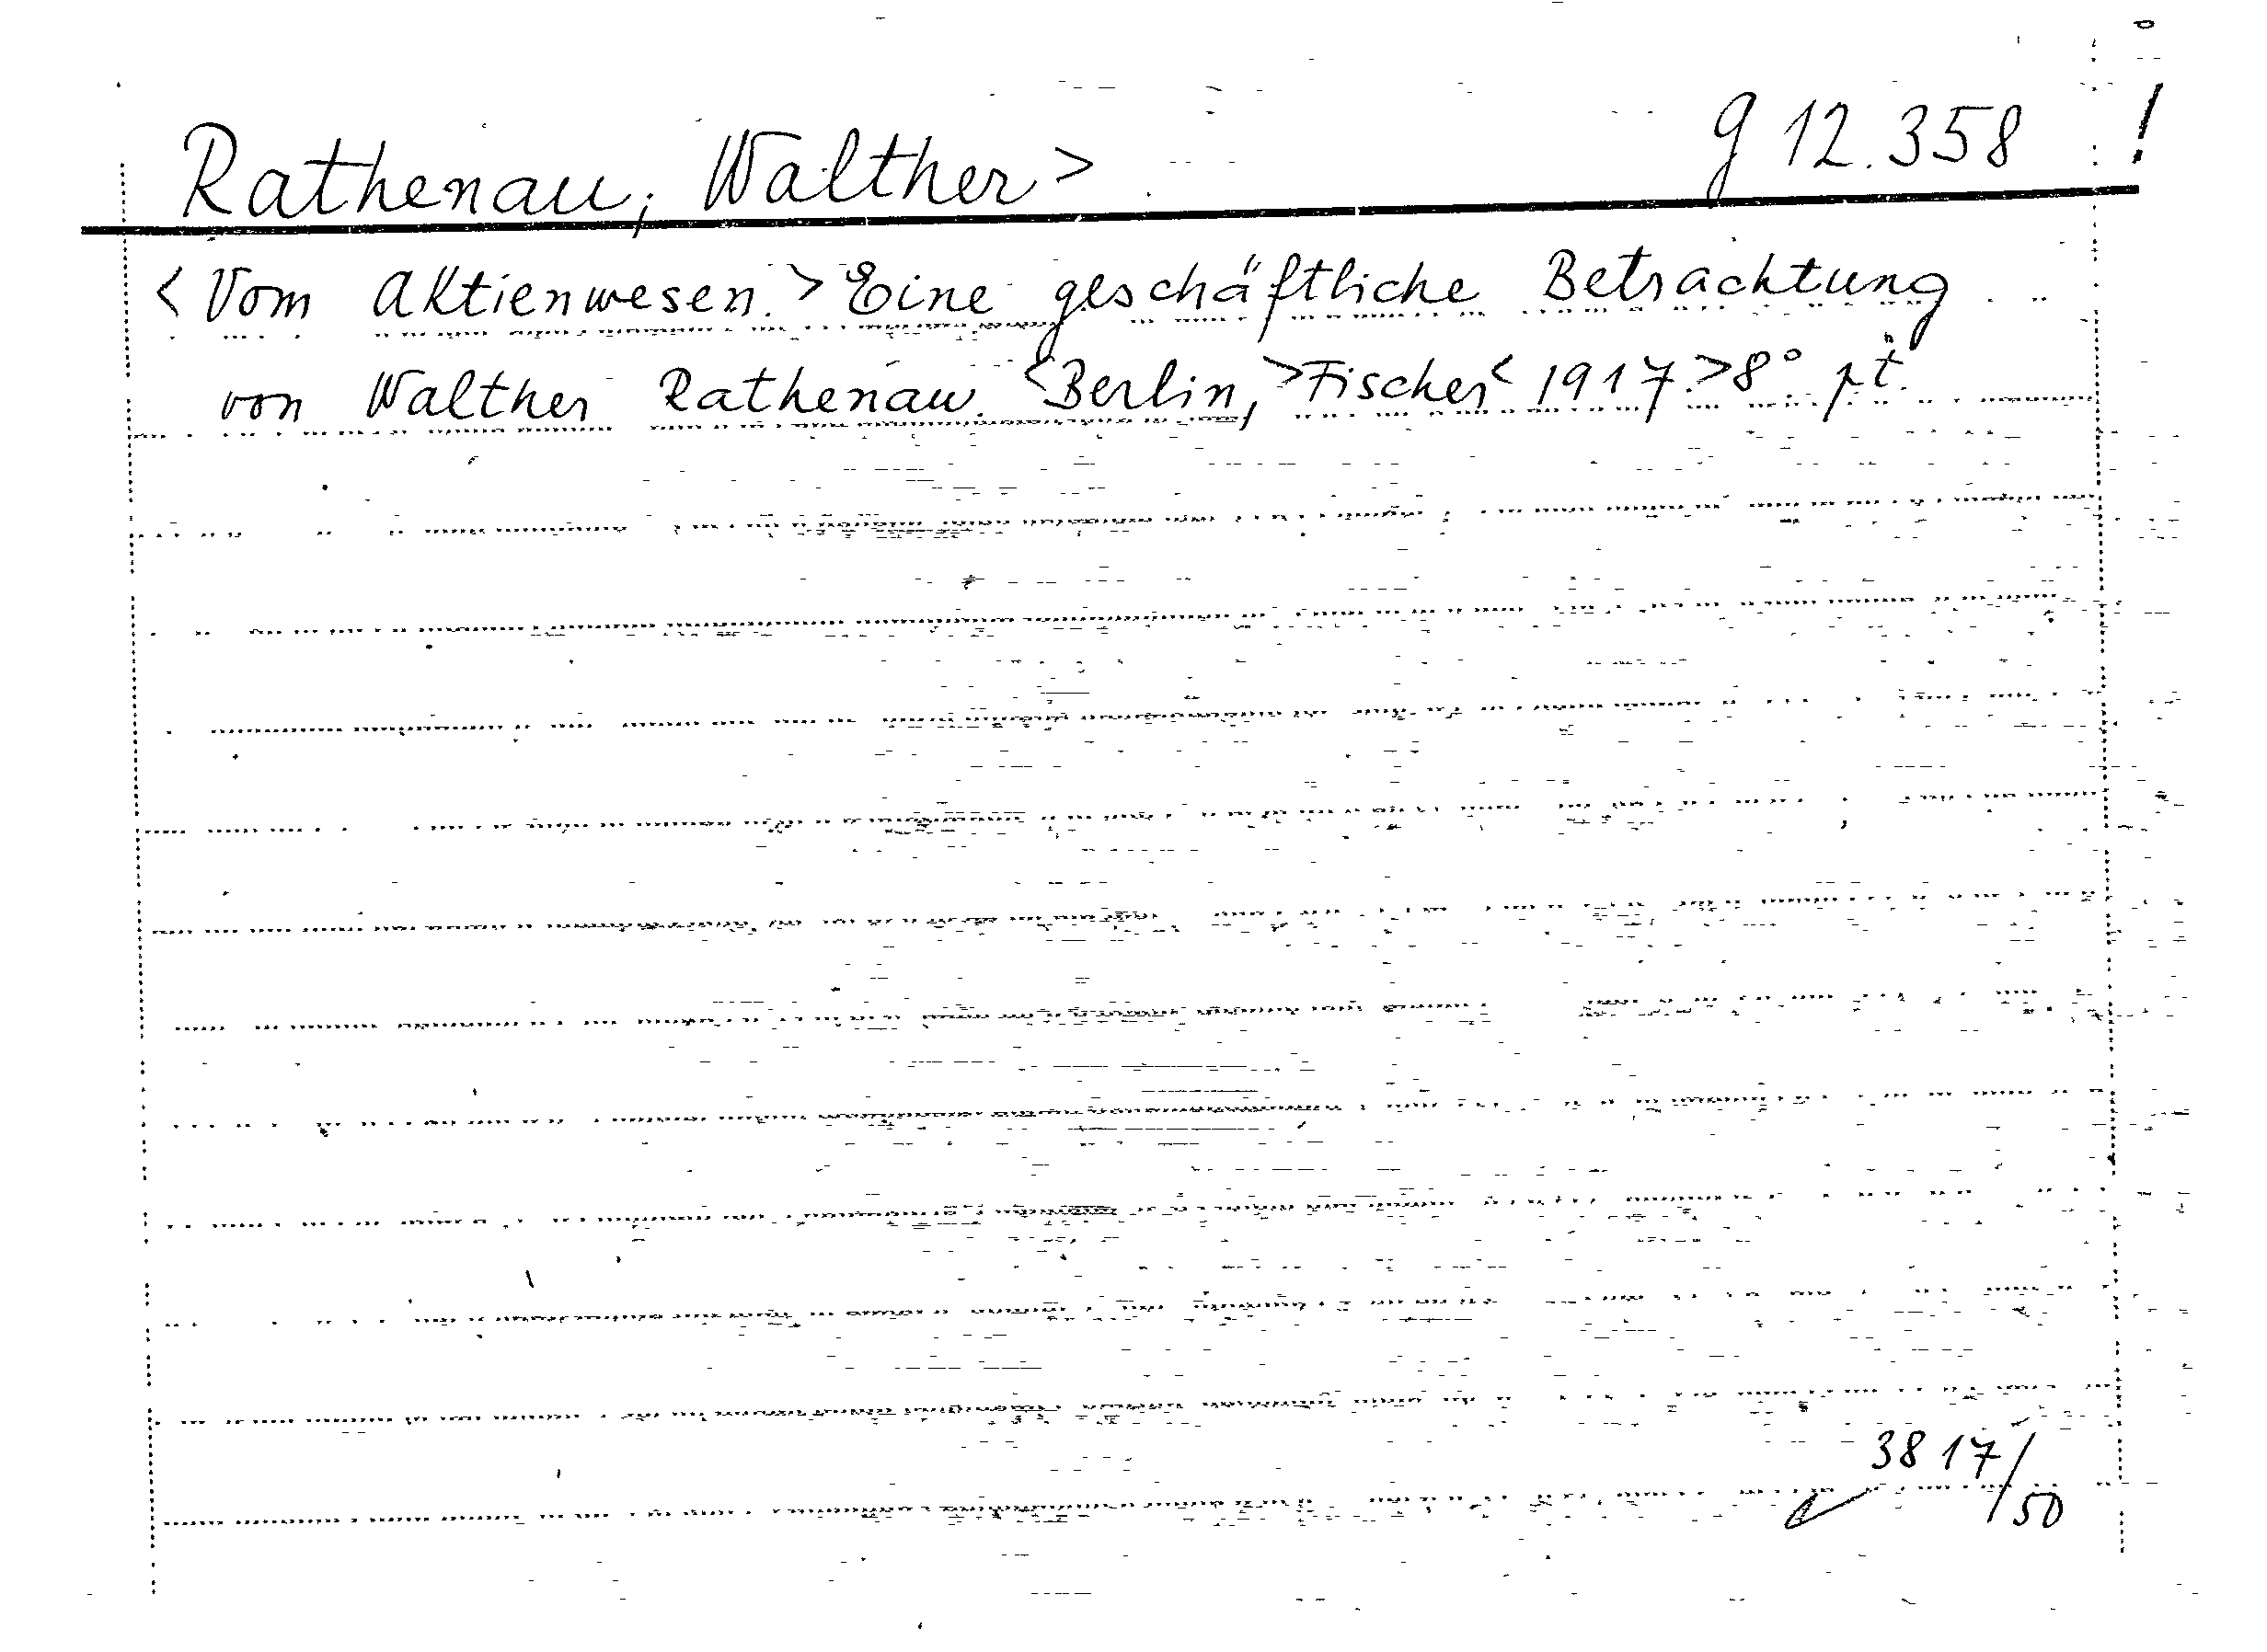 Rathenau, Walther> g 12.358 !
<Vom Aktienwesen.> Eine geschäftliche Betrachtung
von Walther Rathenau. <Berlin,> Fischer <1917.> 8° pt.
3817/50